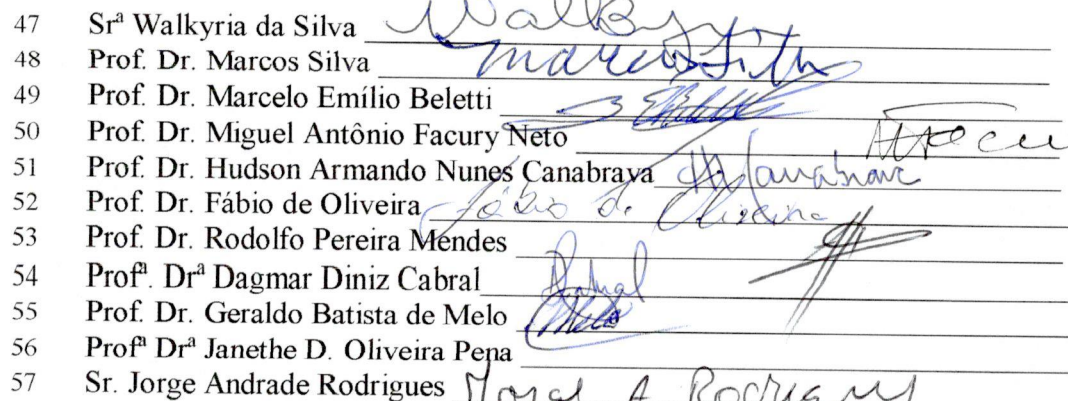 47 Srª Walkyria da Silva Walky
48 Prof. Dr. Marcos Silva Marcos Silva
49 Prof. Dr. Marcelo Emílio Beletti
50 Prof. Dr. Miguel Antônio Facury Neto
51 Prof. Dr. Hudson Armando Nunes Canabrava
52 Prof. Dr. Fábio de Oliveira Fábio de Oliveira
53 Prof. Dr. Rodolfo Pereira Mendes
54 Profª. Drª Dagmar Diniz Cabral
55 Prof. Dr. Geraldo Batista de Melo Melo
56 Profª Drª Janethe D. Oliveira Pena
57 Sr. Jorge Andrade Rodrigues Jorge A Rodrigues